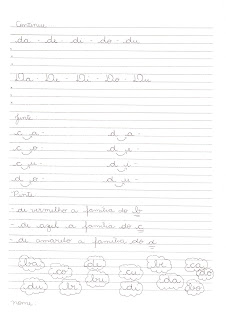 Continue
da - de - di - do - du
Da - De - Di - Do - Du
Junte
c a - d a -
c o - d e -
c u - d i -
d o - d u -
Pinte
- de vermelho a família do b
- de azul a família do c
- de amarelo a família do d
ba di bi ca
co cu da do
du bi bu di bo
nome